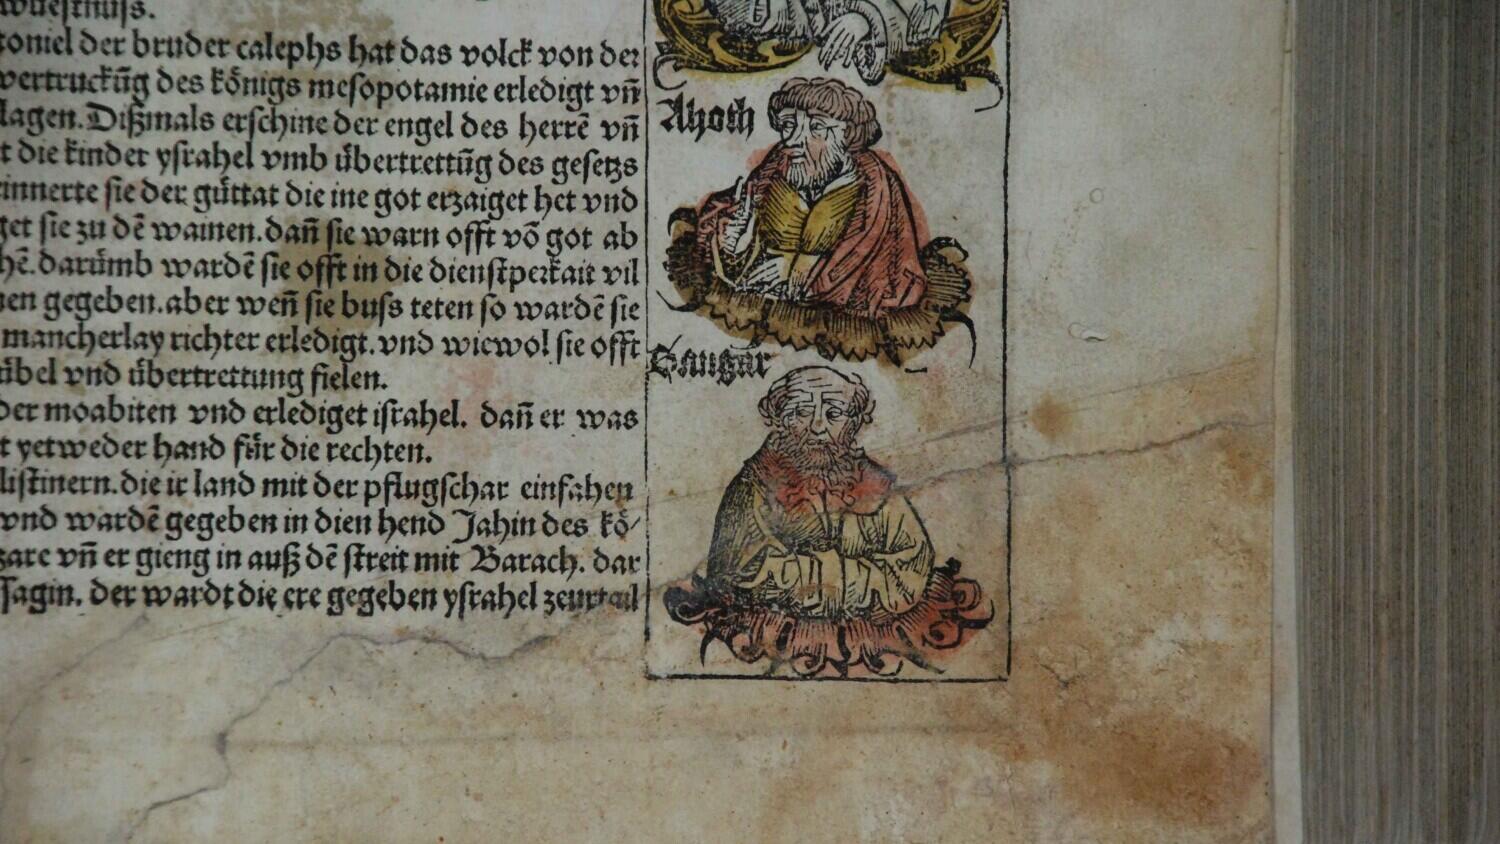 wuestnuss.
toniel der bruder calephs hat das volck von der
vertruckūg des königs mesopotamie erledigt vñ
lagen. Dißmals erschine der engel des herrē vñ
t die kinder ysrahel vmb übertrettūg des gesetzs
innerte sie der güttat die ine got erzaiget het vnd
get sie zu dē wainen. dañ sie warn offt vō got ab
hē. darūmb wardē sie offt in die dienstperkait vil
en gegeben. aber weñ sie buss teten so wardē sie
mancherlay richter erledigt. vnd wiewol sie offt
übel vnd übertrettung fielen.
der moabiten vnd erlediget israhel. dañ er was
t yetweder hand für die rechten.
listinern. die ir land mit der pflugschar einfahen
vnd wardē gegeben in dien hend Jahin des kö/
zare vñ er gieng in auß dē streit mit Barach. dar
Jagin. der wardt die ere gegeben ysrahel zeurtail
Ahoth
Sangar